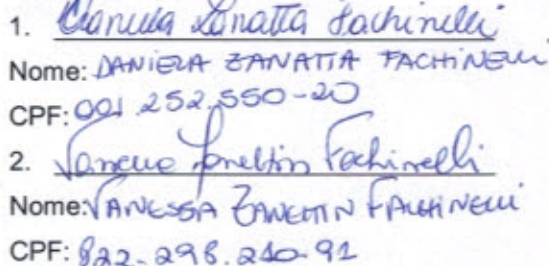 1. Daniela Zanatta Fachinelli
Nome: DANIELA ZANATTA FACHINELLI
CPF: 001 252.550-20
2. Vanessa Zanettin Fachinelli
Nome: VANESSA ZANETTIN FACHINELLI
CPF: 822-298.210-91